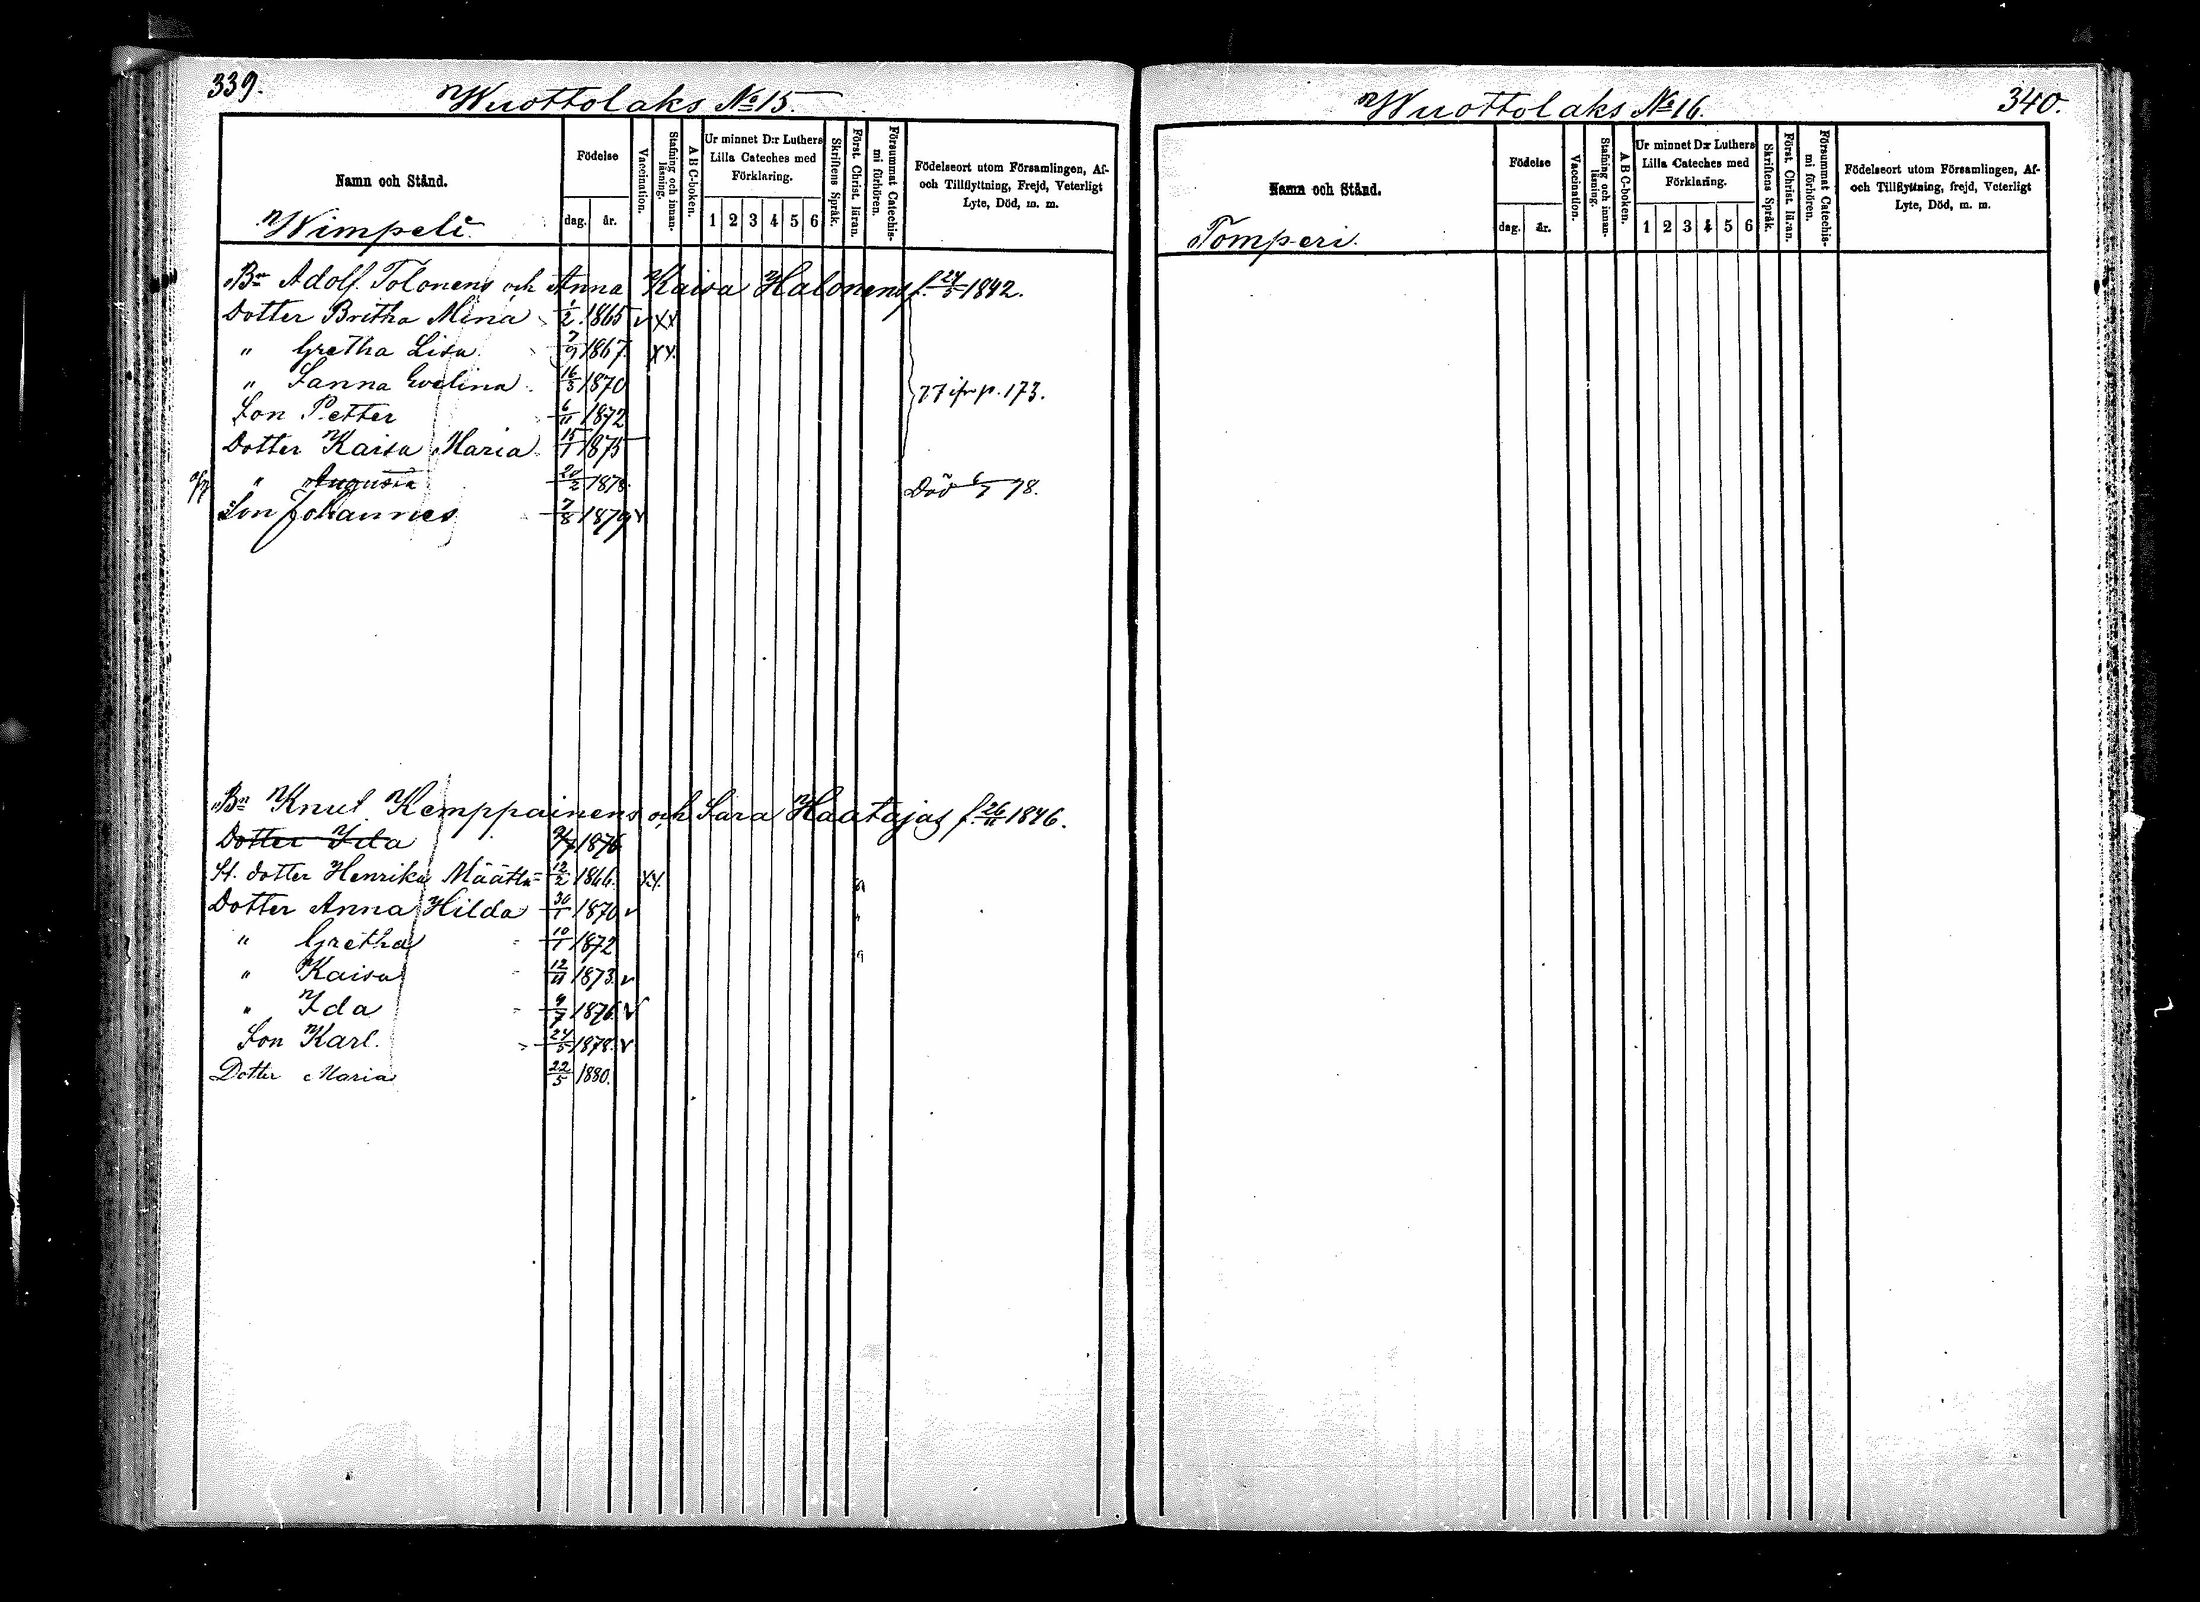 339.
Wuottolaks № 15.
Namn och Stånd.
Födelse
dag.
år.
Vaccination.
Stafning och innan-
läsning.
A B C-boken.
Ur minnet D:r Luthers
Lilla Cateches med
Förklaring.
1 2 3 4 5 6
Skriftens Språk.
Först. Christ. läran.
Försummat Catechis-
mi förhören.
Födelseort utom Församlingen, Af-
och Tillflyttning, Frejd, Veterligt
Lyte, Död, m. m.
Wimpeli
Bn Adolf Tolonens och Anna Kaisa Halonens f. 24/5 1842.
Dotter Britha Mina 1/2 1865 v xx
" Gretha Lisa 7/9 1867 xx
" Sanna Evelina 16/3 1870
77 p. 173.
Son Petter 6/11 1872
Dotter Kaisa Maria 15/1 1875
" Augusta 20/2 1878. Död 78.
Son Johannes 7/8 1879 v
Bn Knut Kemppainens och Sara Haatajas f. 26/11 1846.
Dotter Ida 9/7 1876
St. dotter Henrika Määttä 12/2 1866. xx.
Dotter Anna Hilda 30/1 1870 v
" Gretha 10/1 1872
" Kaisa 12/11 1873. v
" Ida 9/7 1876. v
Son Karl. 24/5 1878. v
Dotter Maria 22/5 1880.
Wuottolaks № 16.
340.
Namn och Stånd.
Födelse
dag.
år.
Vaccination.
Stafning och innan-
läsning.
A B C-boken.
Ur minnet D:r Luthers
Lilla Cateches med
Förklaring.
1 2 3 4 5 6
Skriftens Språk.
Först. Christ. läran.
Försummat Catechis-
mi förhören.
Födelseort utom Församlingen, Af-
och Tillflyttning, frejd, Veterligt
Lyte, Död, m. m.
Tomperi.